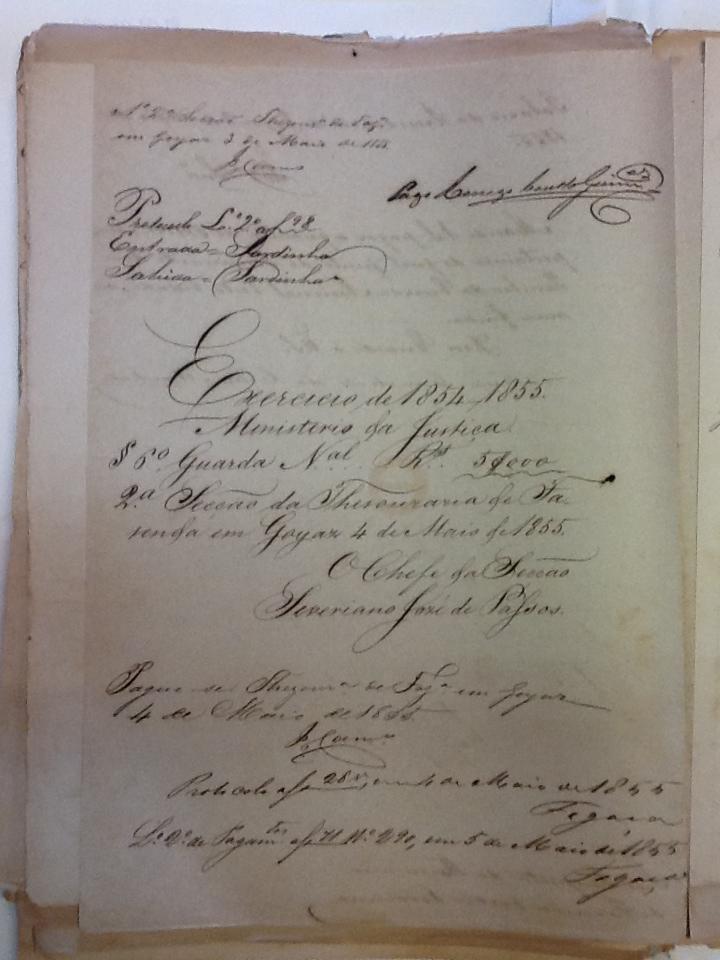 A' 2ª Secção Thezour.ª de Faz.ª
em Goyaz 3 de Maio de 185
Protocolo L.º 2º a f 98
Entrada = Sardinha
Sahida = Sardinha
Exercicio de 1854, 1855.
Ministerio da Justiça
§ 6º Guarda N.al R.s 5$000
2.ª Secção da Thesouraria de Fa-
senda em Goyaz 4 de Maio de 1855.
O Chefe da Secção
Severiano José de Passos.
Pague-se Thezour.ª de Faz.ª em Goyaz
4 de Maio de 1855
Protocolo a f 28 v, em 4 de Maio de 1855
Fogaça
L.º 2º de Pagam.tos a f 71 Nº 290, em 5 de Maio de 1855
Fogaça